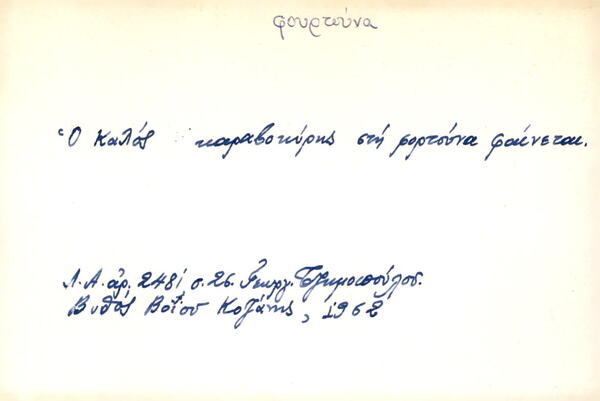 φουρτούνα
Ὁ καλός καραβοκύρης στή φορτούνα φαίνεται.
Λ.Α. ἀρ. 2481 σ. 26. Γεωργ. Τζημόπουλος.
Βυθός Βοΐου Κοζάνης, 1962